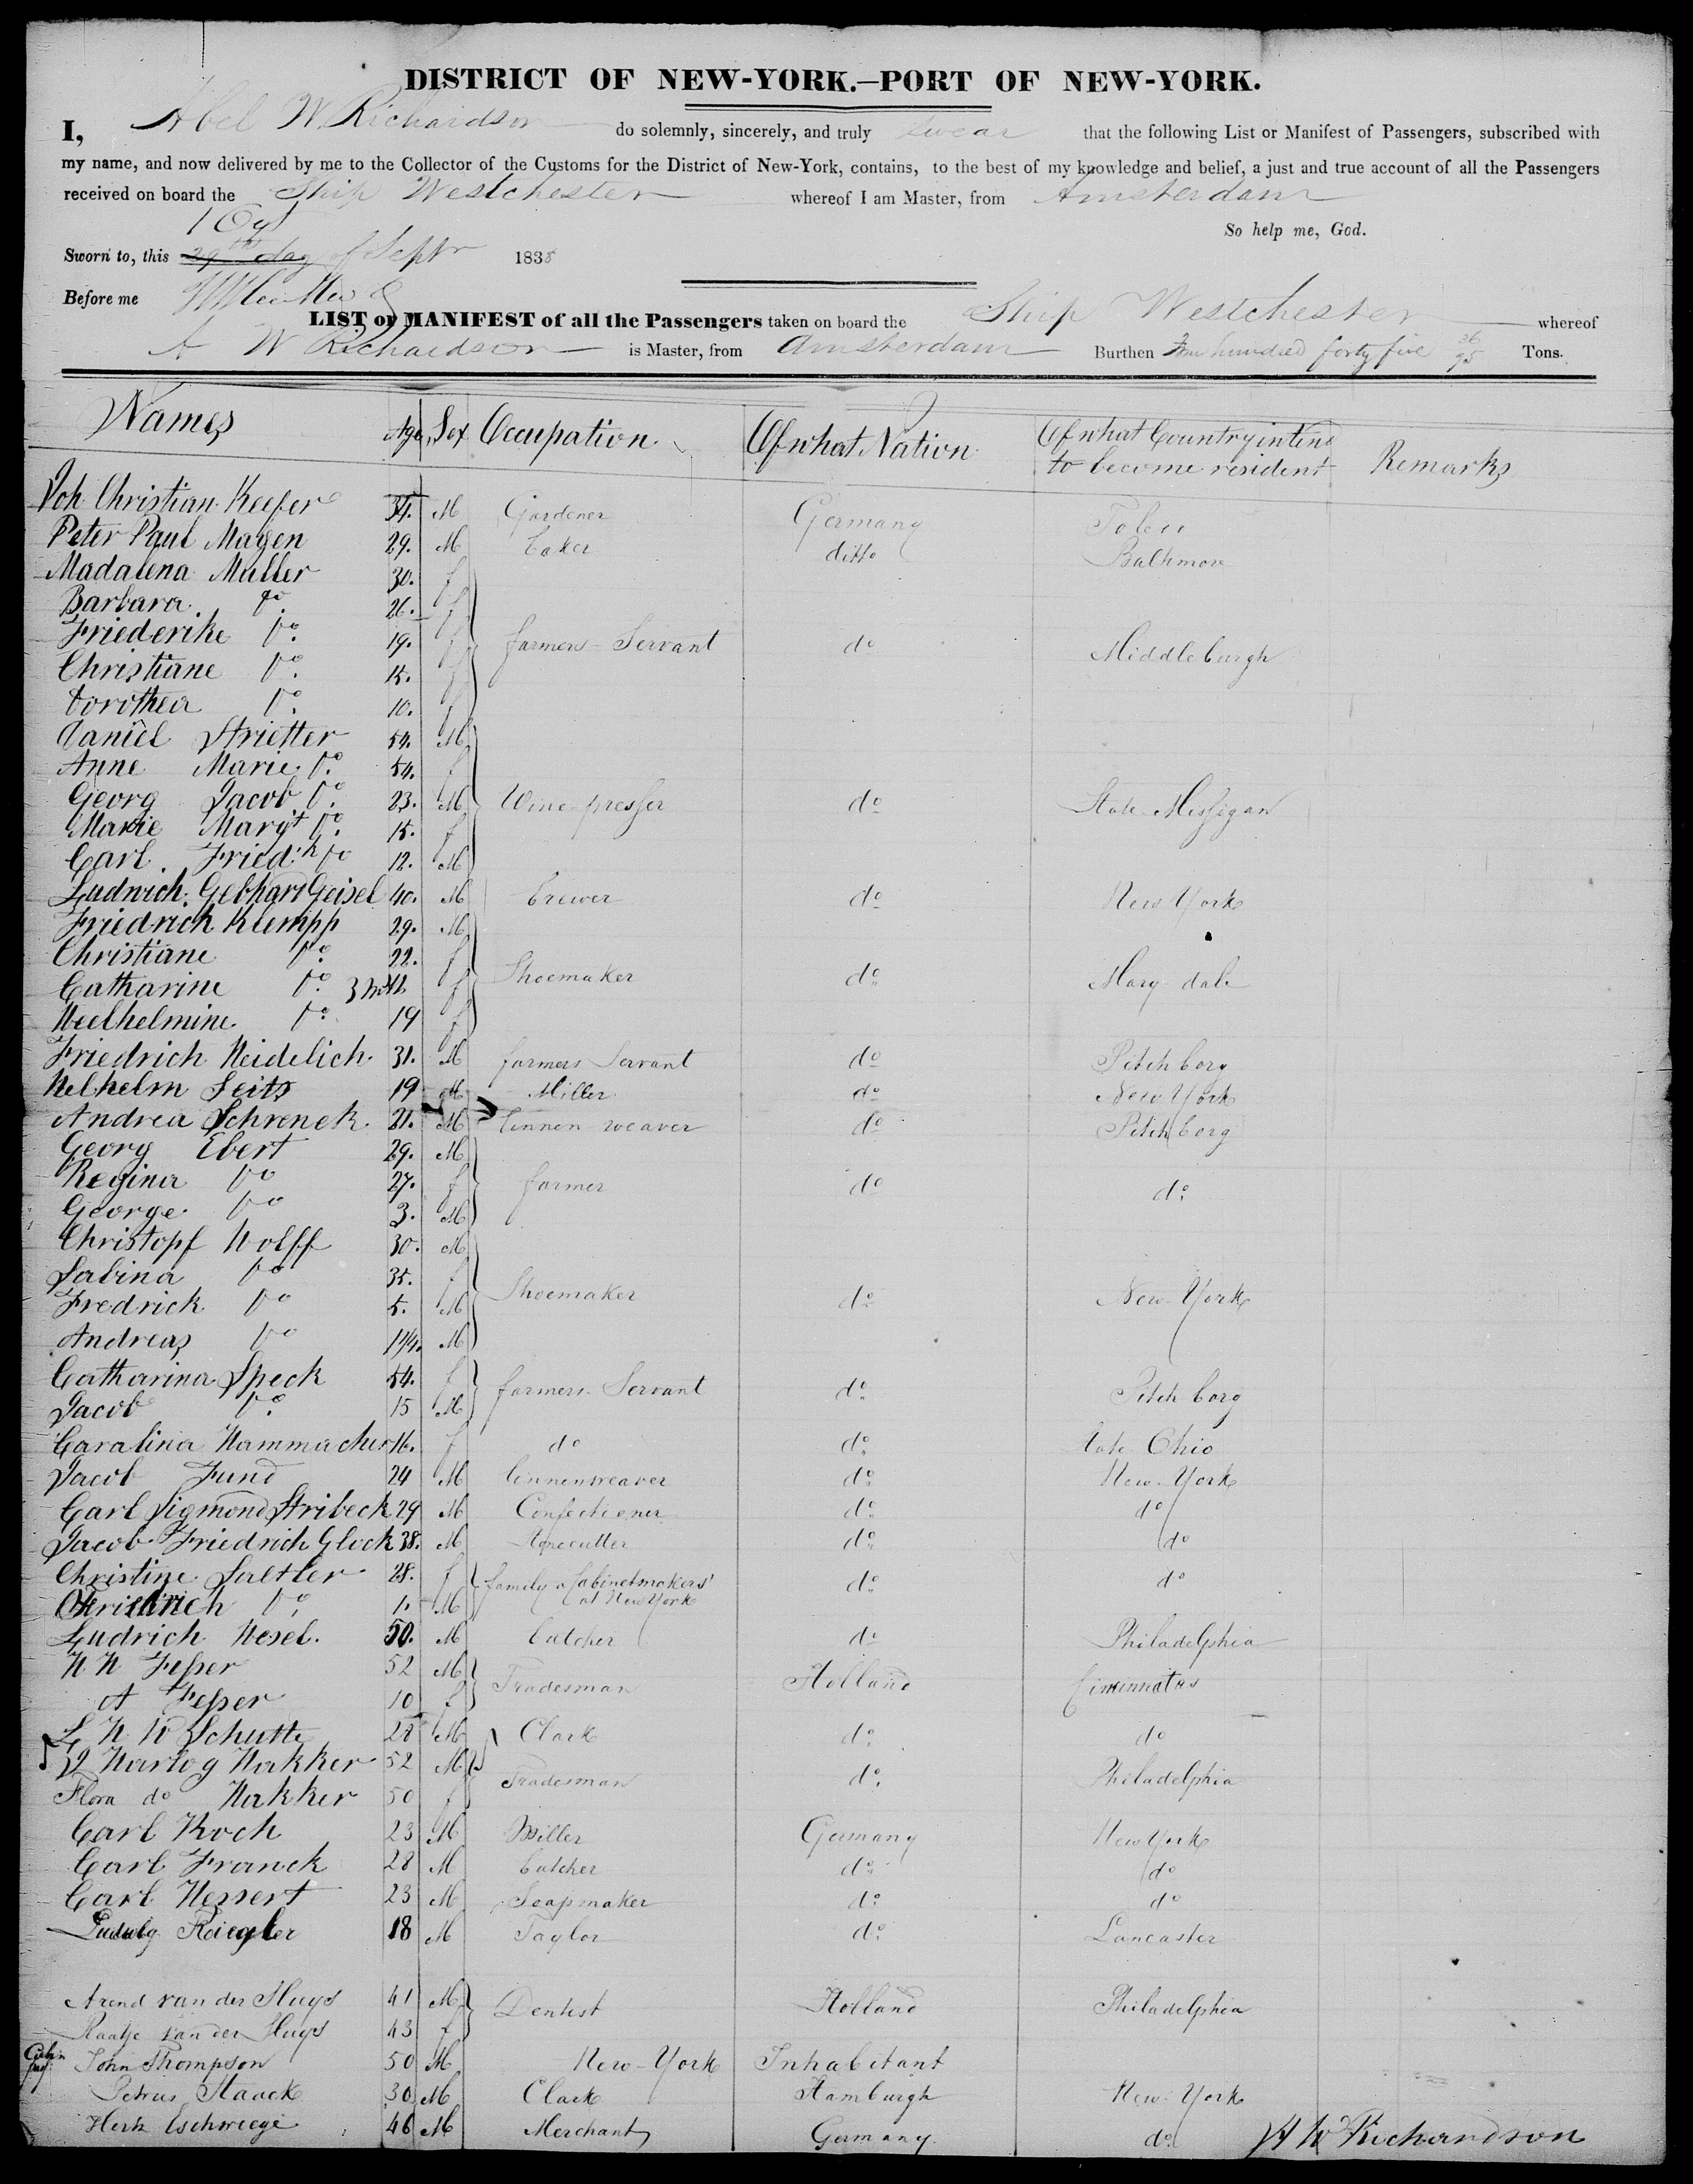 DISTRICT OF NEW-YORK.—PORT OF NEW-YORK.
I, Abel W. Richardson do solemnly, sincerely, and truly swear that the following List or Manifest of Passengers, subscribed with
my name, and now delivered by me to the Collector of the Customs for the District of New-York, contains, to the best of my knowledge and belief, a just and true account of all the Passengers
received on board the Ship Westchester whereof I am Master, from Amsterdam
So help me, God.
1 Oct
Sworn to, this 29th day of Septr 1838
Before me
LIST or MANIFEST of all the Passengers taken on board the Ship Westchester whereof
A W Richardson is Master, from Amsterdam Burthen hundred forty five 36/95 Tons.
Names Age Sex Occupation Of what Nation Of what Country intend to become resident Remarks
Joh Christian Keefer 34. M Gardener Germany
Peter Paul Magen 29. M baker ditto Balthmore
Madalena Muller 30. f
Barbara do. 26. f
Friederike do. 19. f farmers-Servant do Middleburgh
Christiane do. 15. f
Dorothea do. 10. f
Daniel Strietter 54. M
Anne Marie do. 54. f
Georg Jacob do. 23. M Wine-presser do State Missigan
Marie Margt do. 15. f
Carl Friedch do 12. M
Ludwich Gebhard Geisel 40. M brewer do New York
Friedrich Kumpp 29. M
Christiane do. 22. f Shoemaker do Mary dale
Catharine do. 3 f
Weelhelmine do. 19 f
Friedrich Heidelich 31. M farmers Servant do Pitchborg
Welhelm Seits 19 M Miller do New York
Andrea Schrenck 21. M linnen weaver do Pitchborg
Georg Ebert 29. M
Regina do 27. f farmer do do
George do 3. M
Christopf Wolff 30. M
Sabina do 35. f Shoemaker do New-York
Fredrick do 5. M
Andreas do 1 1/4. M
Catharina Speck 54. f farmers Servant do Pitchborg
Jacob do. 15 M
Caralina Hammacher 16. f do do State Ohio
Jacob Fund 24 M linnenweaver do New-York
Carl Sigmond Stribeck 29 M Confectioner do do
Jacob Friedrich Glock 38. M Stonecutter do do
Christine Saltler 28. f family a Cabinetmakers' at New York do do
do. 1. M
Ludrich Wesel. 50. M butcher do Philadelphia
H H Fesser 52 M Tradesman Holland Cincinnatus
A Fesser 10 f
L H W Schutte 28 M Clark do do
J Hartog Hakker 52 M Tradesman do Philadelphia
Flora do Hakker 50 f
Carl Koch 23 M Miller Germany New York
Carl Franck 28 M butcher do do
Carl Hessert 23 M Soapmaker do do
Ludwig Riegler 18 M Taylor do Lancaster
Arend van der Sluys 41 M Dentist Holland Philadelphia
Kaatje van der Sluys 43 f
Cabin pasj. John Thompson 50 M New-York Inhabitant
Petrus Staack 30 M Clark Hamburgh New-York
Herk Eschwege 46 M Merchant Germany do
A W Richardson